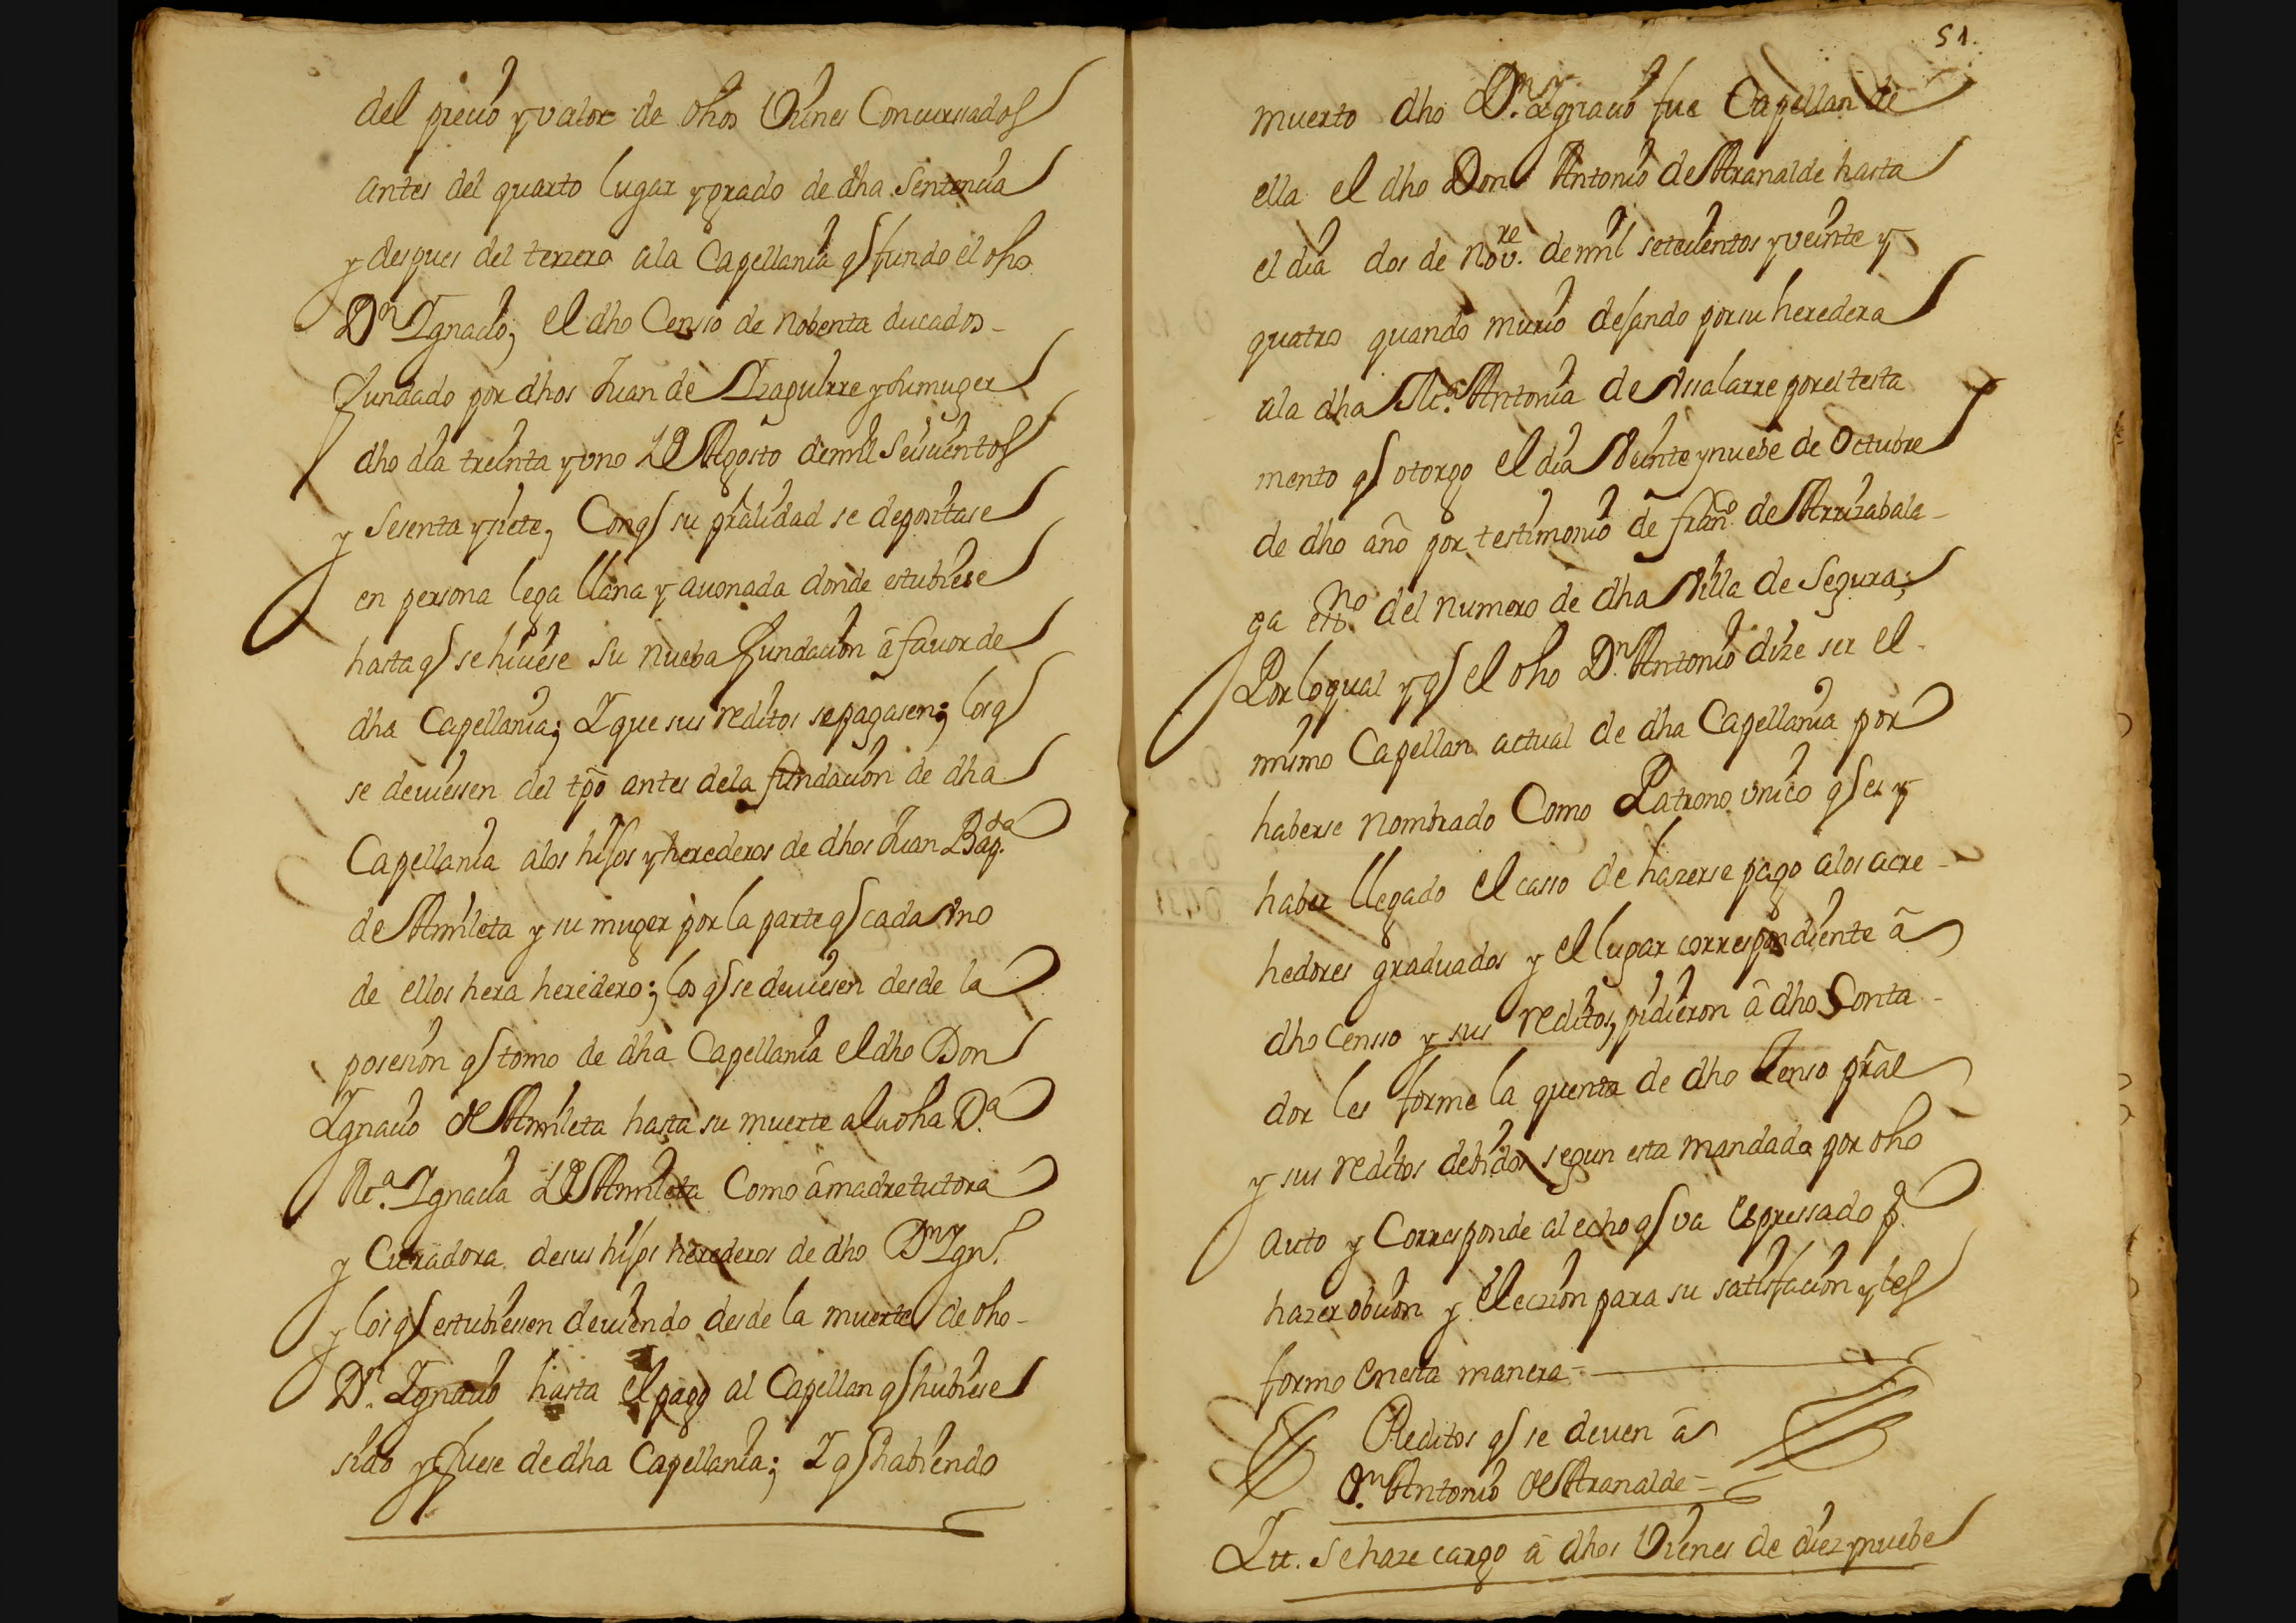 del precio y valor de dhos Vienes Concursados
antes del quarto lugar y grado de dha Sentencia
y despues del terzero ala Capellania q fundo el dho
Dn Ignacio; el dho Censso de nobenta ducados
fundado por dhos Juan de Yzaguirre y su muger
dho dia treinta y uno de Agosto de mil Seiscientos
y Sesenta y siete; Con q su pralidad se depositase
en persona lega llana y avonada donde estubiese
hasta q se hiciese su nueba fundacion â favor de
dha Capellania; Y que sus reditos se pagasen; los q
se deviessen del tpo antes dela fundacion de dha
Capellania alos hijos y herederos de dhos Juan Bapta
de Armileta y su muger por la parte q cada Uno
de ellos hera heredero; los q se deviesen desde la
posesion q tomo de dha Capellania el dho Don
Ignacio de Armileta hasta su muerte ala dha Da
Ma. Ignacia de Armileta Como â madre tutora
y Curadora de sus hijos herederos de dho Dn Ign.
y los q estubiessen deviendo desde la muerte de dho
Dn. Ignacio hasta el pago al Capellan q hubiese
sido y fuese de dha Capellania; Y q habiendo
51.
muerto dho Dn. Ignacio fue Capellan de
ella el dho Don Antonio de Aranalde hasta
el dia dos de Novre. de mil setecientos y veinte y
quatro quando murio dejando por su heredera
ala dha Ma. Antonia de por el testa
mento q otorgo el dia Veinte y nuebe de Octubre
de dho año por testimonio de franco de Arrizabala
ga esno. del numero de dha Villa de Segura;
Por lo qual y q el dho Dn. Antonio dize ser el
mismo Capellan actual de dha Capellania por
haberse nombrado Como Patrono unico q es y
haber llegado el casso de hazerse pago alos acre
hedores graduados y el lugar correspondiente â
dho Censso y sus reditos, pidieron â dho Conta
dor les forme la quenta de dho Censo pral
y sus reditos debidos segun esta mandado por dho
auto y Corresponde al echo q va Espressado pa.
hazer obcion y Eleccion para su satisfacion y les
formo en esta manera
Reditos q se deven â
Dn. Antonio de Aranalde
Ytt. Se haze cargo â dhos Vienes de diez y nuebe